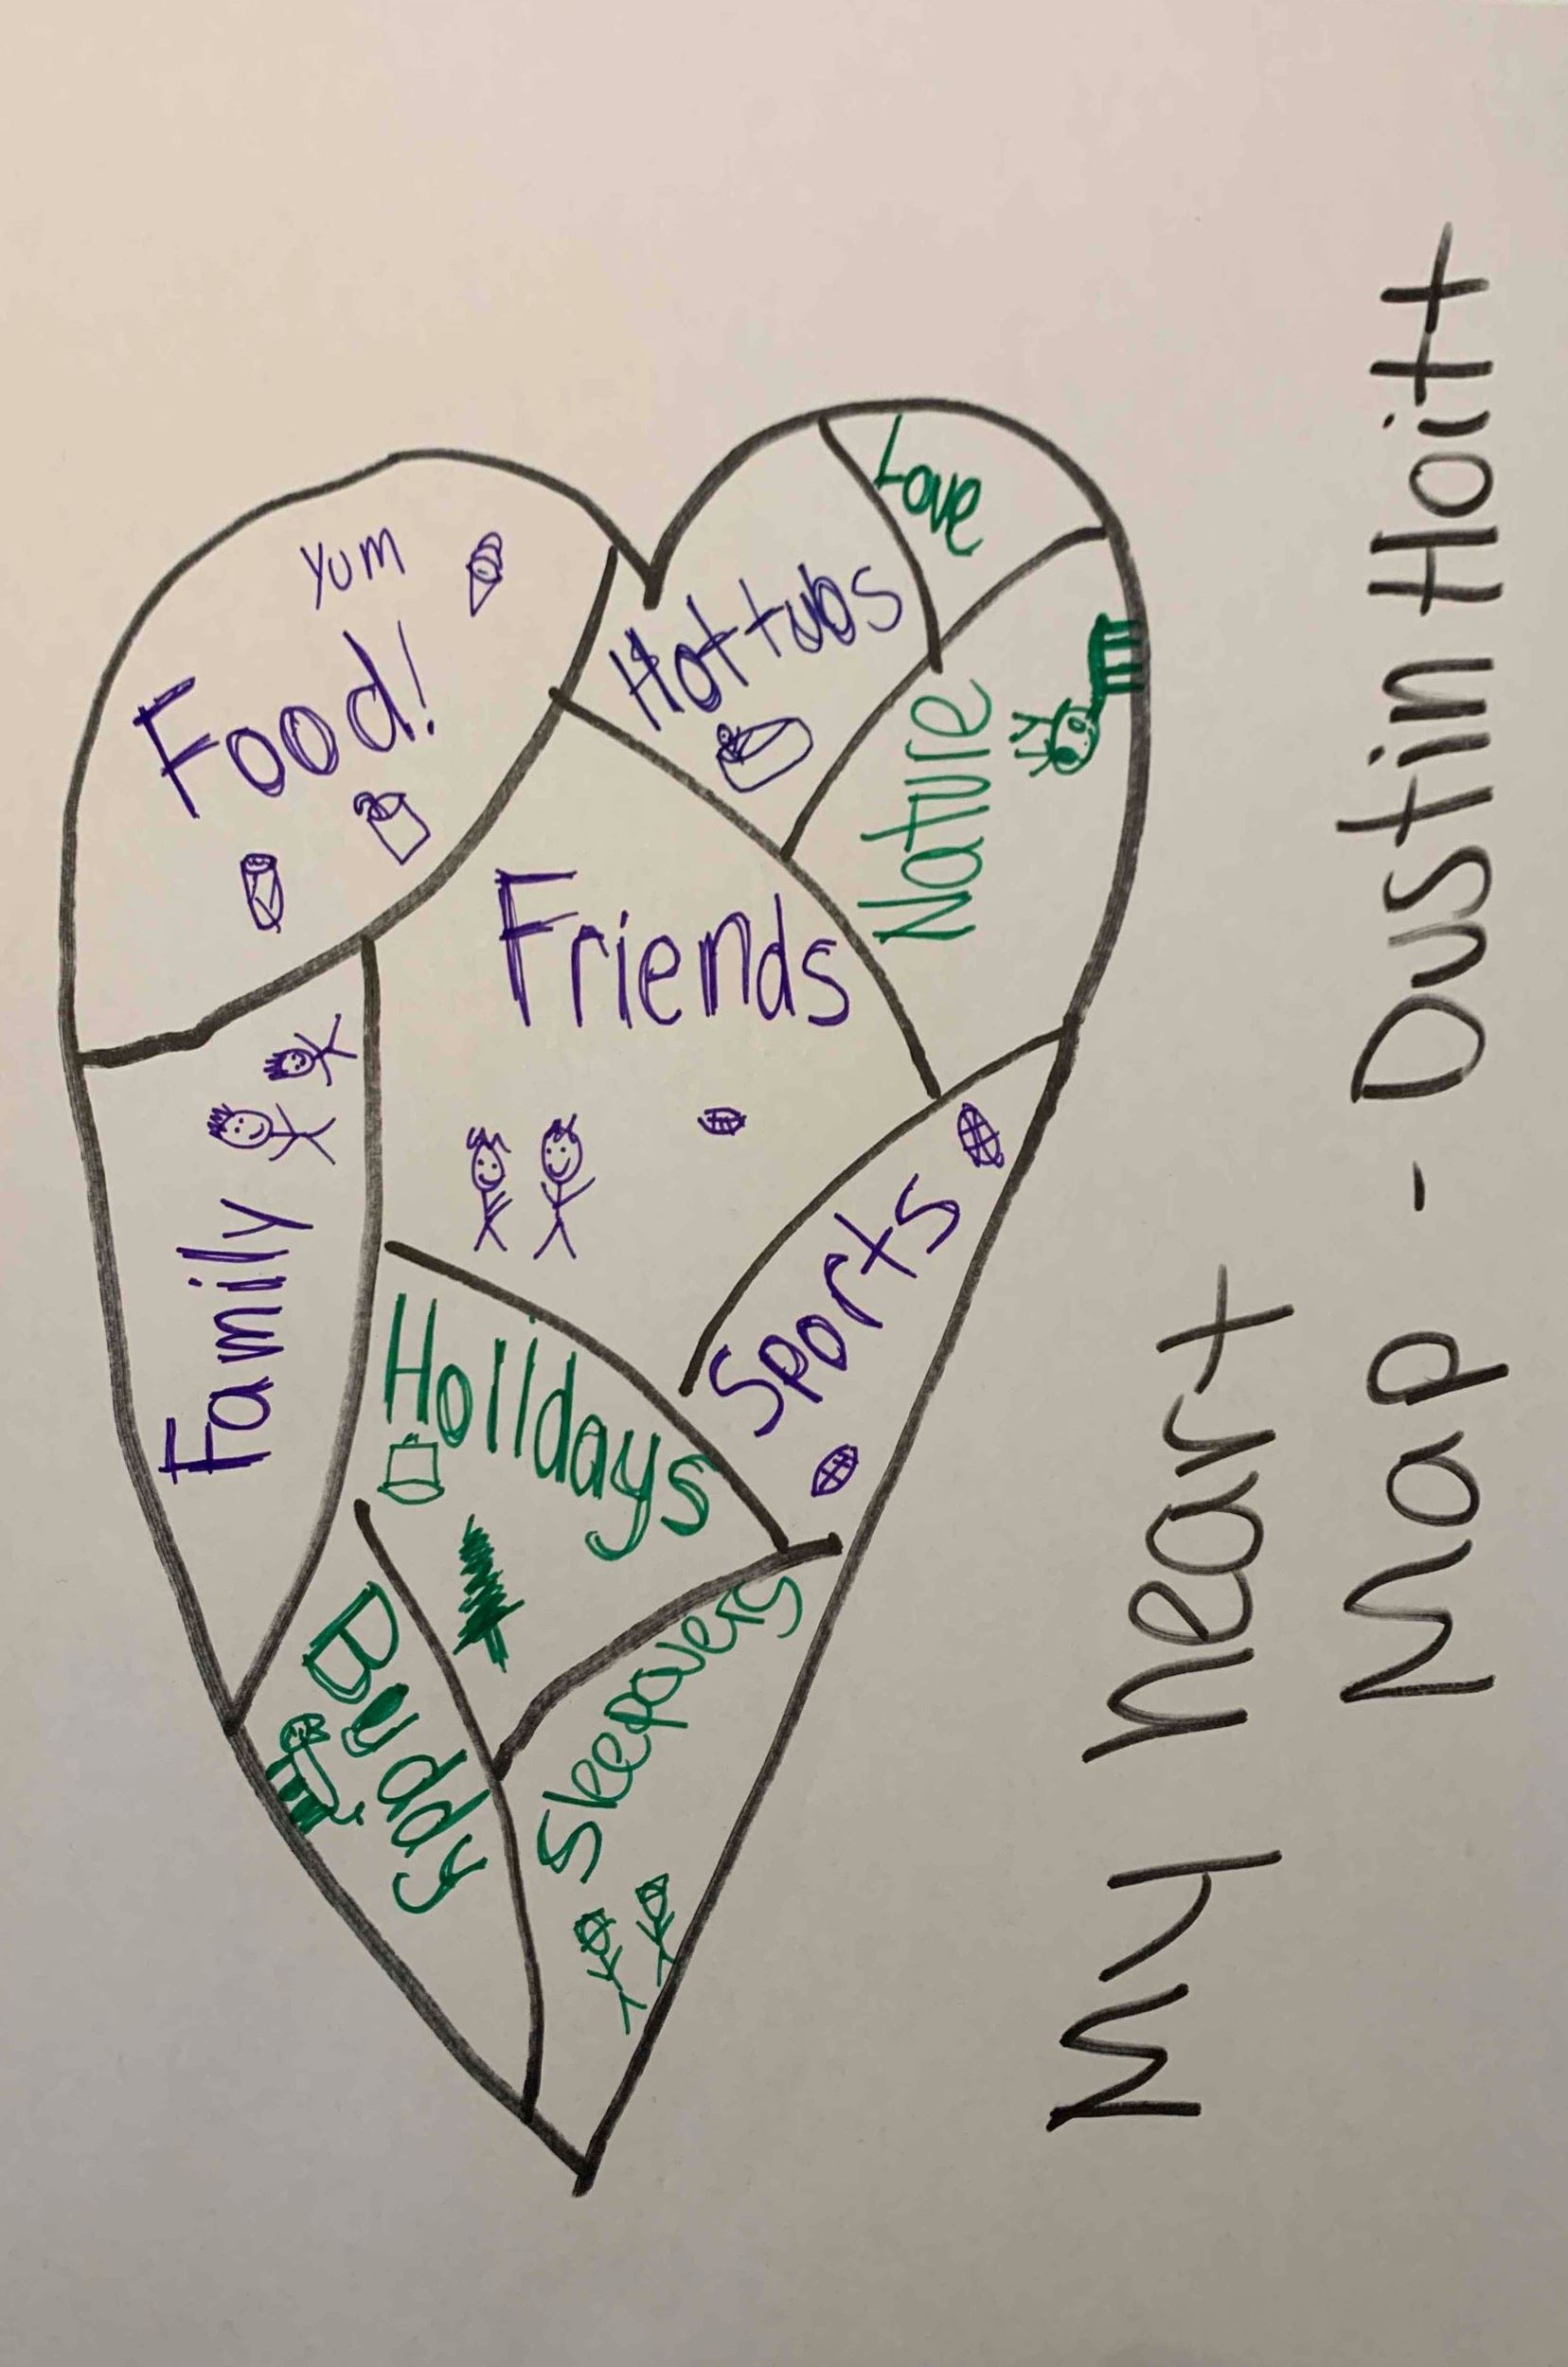 My heart
Map - Dustin Hoitt
Yum
Food!
Hot tubs
Love
Nature
Friends
Family
Sports
Holldays
Buddy
Sleepovers